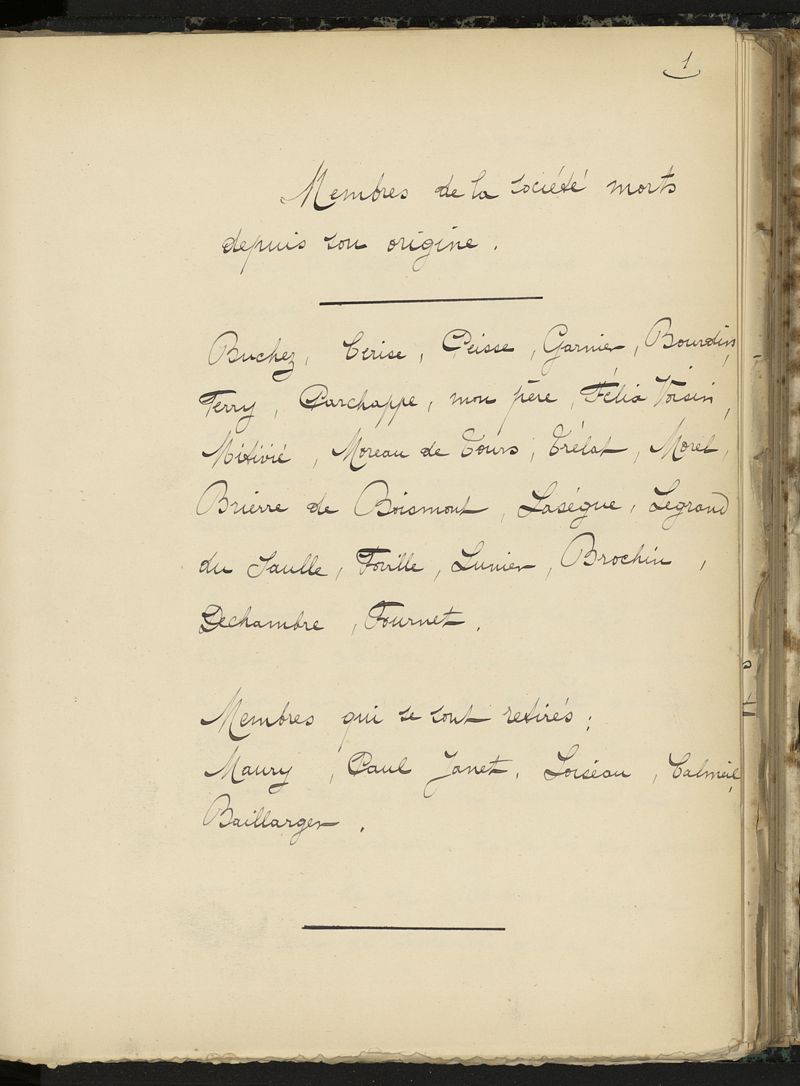 1
Membres de la société morts
depuis son origine.
Buchez, Cerise, Peisse, Garnier, Bourdin,
Ferry, Parchappe, mon père, Félix Voisin,
Mitivié, Moreau de Tours, Trélat, Morel,
Brierre de Boismont, Laségue, Legrand
du Saulle, Foville, Lunier, Brochin,
Dechambre, Fournet.
Membres qui se sont retirés:
Maury, Paul Janet, Loiseau, Calmeil,
Baillarger.